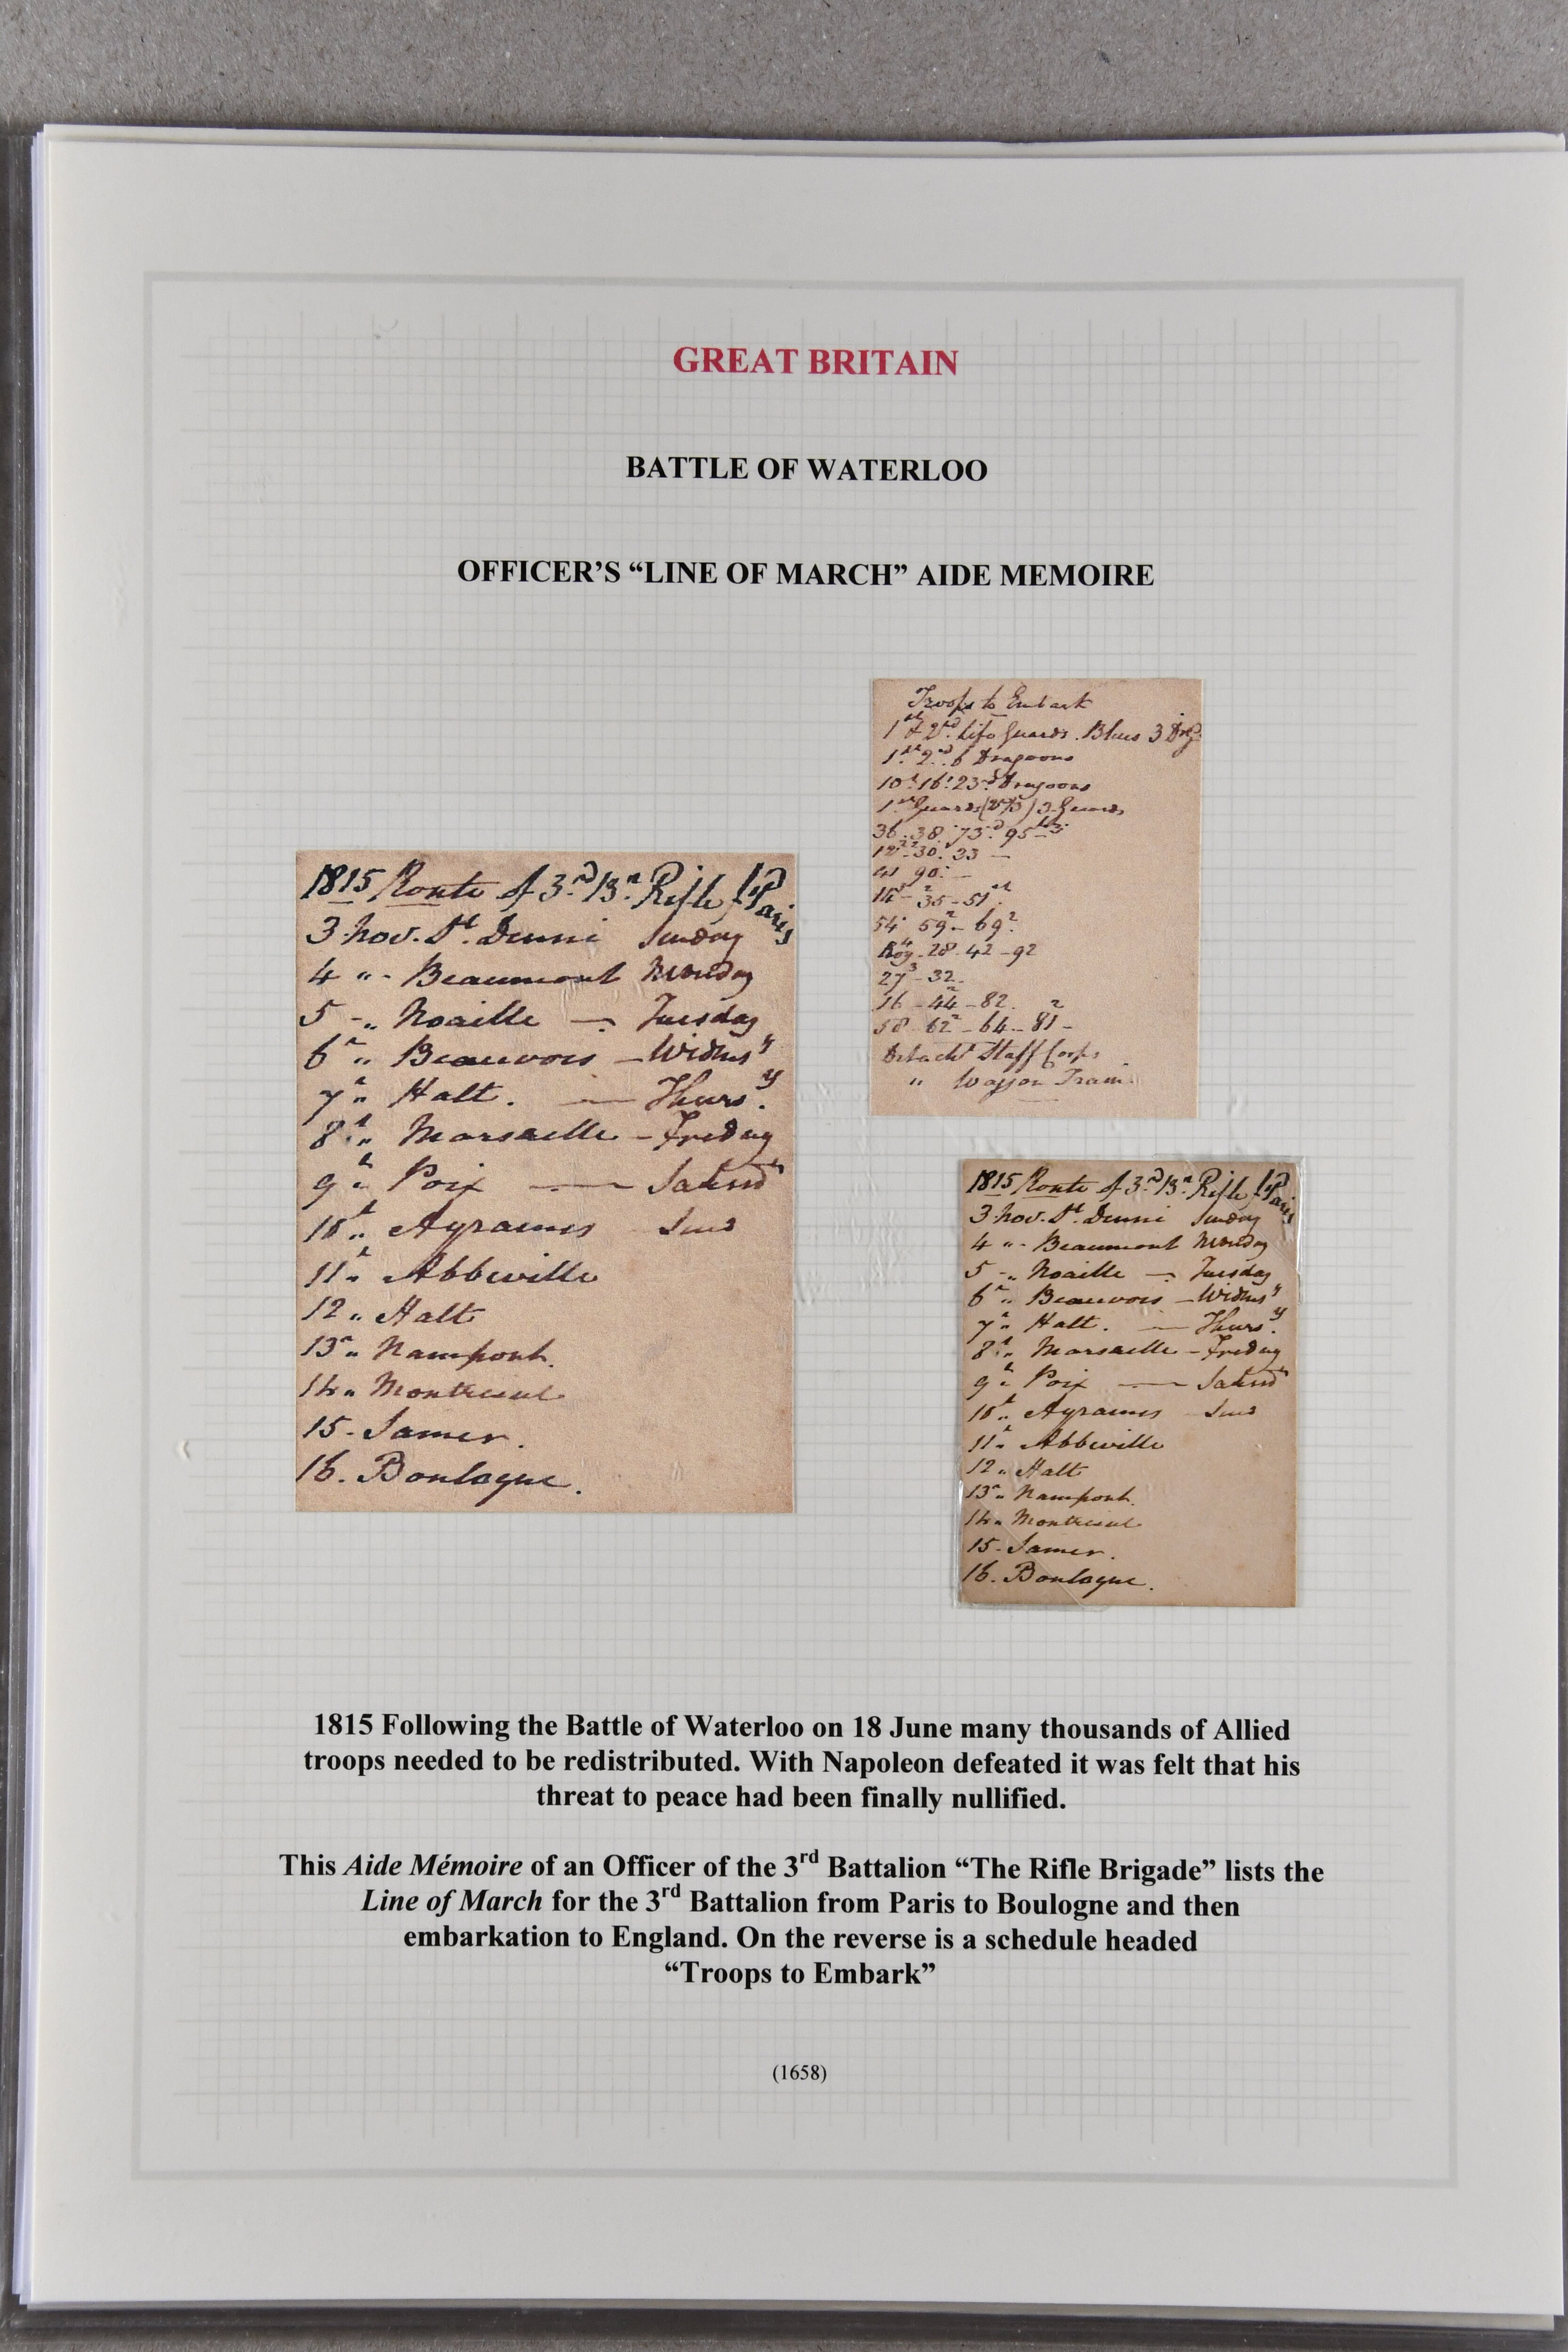 GREAT BRITAIN
BATTLE OF WATERLOO
OFFICER'S “LINE OF MARCH” AIDE MEMOIRE
Troops to Embark
1st & 2nd Life Guards. Blues 3 Dg
1st 2nd 6 Dragoons
10th 16t 23rd Dragoons
1st Guards (2d/3) 3 Guards
36. 38. 73d. 95
12 30. 33 —
41 90. —
14 - 35 - 51st.
54 59 - 69.
28 - 42 - 92
27 - 32.
16 - 44 - 82.
58 - 62 - 64 - 81 -
Detacht Staff Corps
" Waggon Train
1815 Route of 3rd Bn Rifle f Paris
3 Nov. St. Denni Sunday
4 " - Beaumont Monday
5 - " Noaille — Tuesday
6 " Beauvois — Widnsy
7 " Halt. — Thursy.
8 " Marsaelle - Friday
9 " Poix — Saturd
10 " Ayraines Sund
11 " Abbeville
12 " Halt
13 " Nampont.
14 " Montreuil
15 - Samer.
16. Boulogne.
1815 Route of 3rd Bn Rifle f Paris
3 Nov. St. Denni Sunday
4 " - Beaumont Monday
5 - " Noaille — Tuesday
6 " Beauvois — Widnsy
7 " Halt. — Thursy.
8 " Marsaelle - Friday
9 " Poix — Saturd
10 " Ayraines Sund
11 " Abbeville
12 " Halt
13 " Nampont.
14 " Montreuil
15 - Samer.
16. Boulogne.
1815 Following the Battle of Waterloo on 18 June many thousands of Allied
troops needed to be redistributed. With Napoleon defeated it was felt that his
threat to peace had been finally nullified.
This Aide Mémoire of an Officer of the 3rd Battalion “The Rifle Brigade” lists the
Line of March for the 3rd Battalion from Paris to Boulogne and then
embarkation to England. On the reverse is a schedule headed
“Troops to Embark”
(1658)